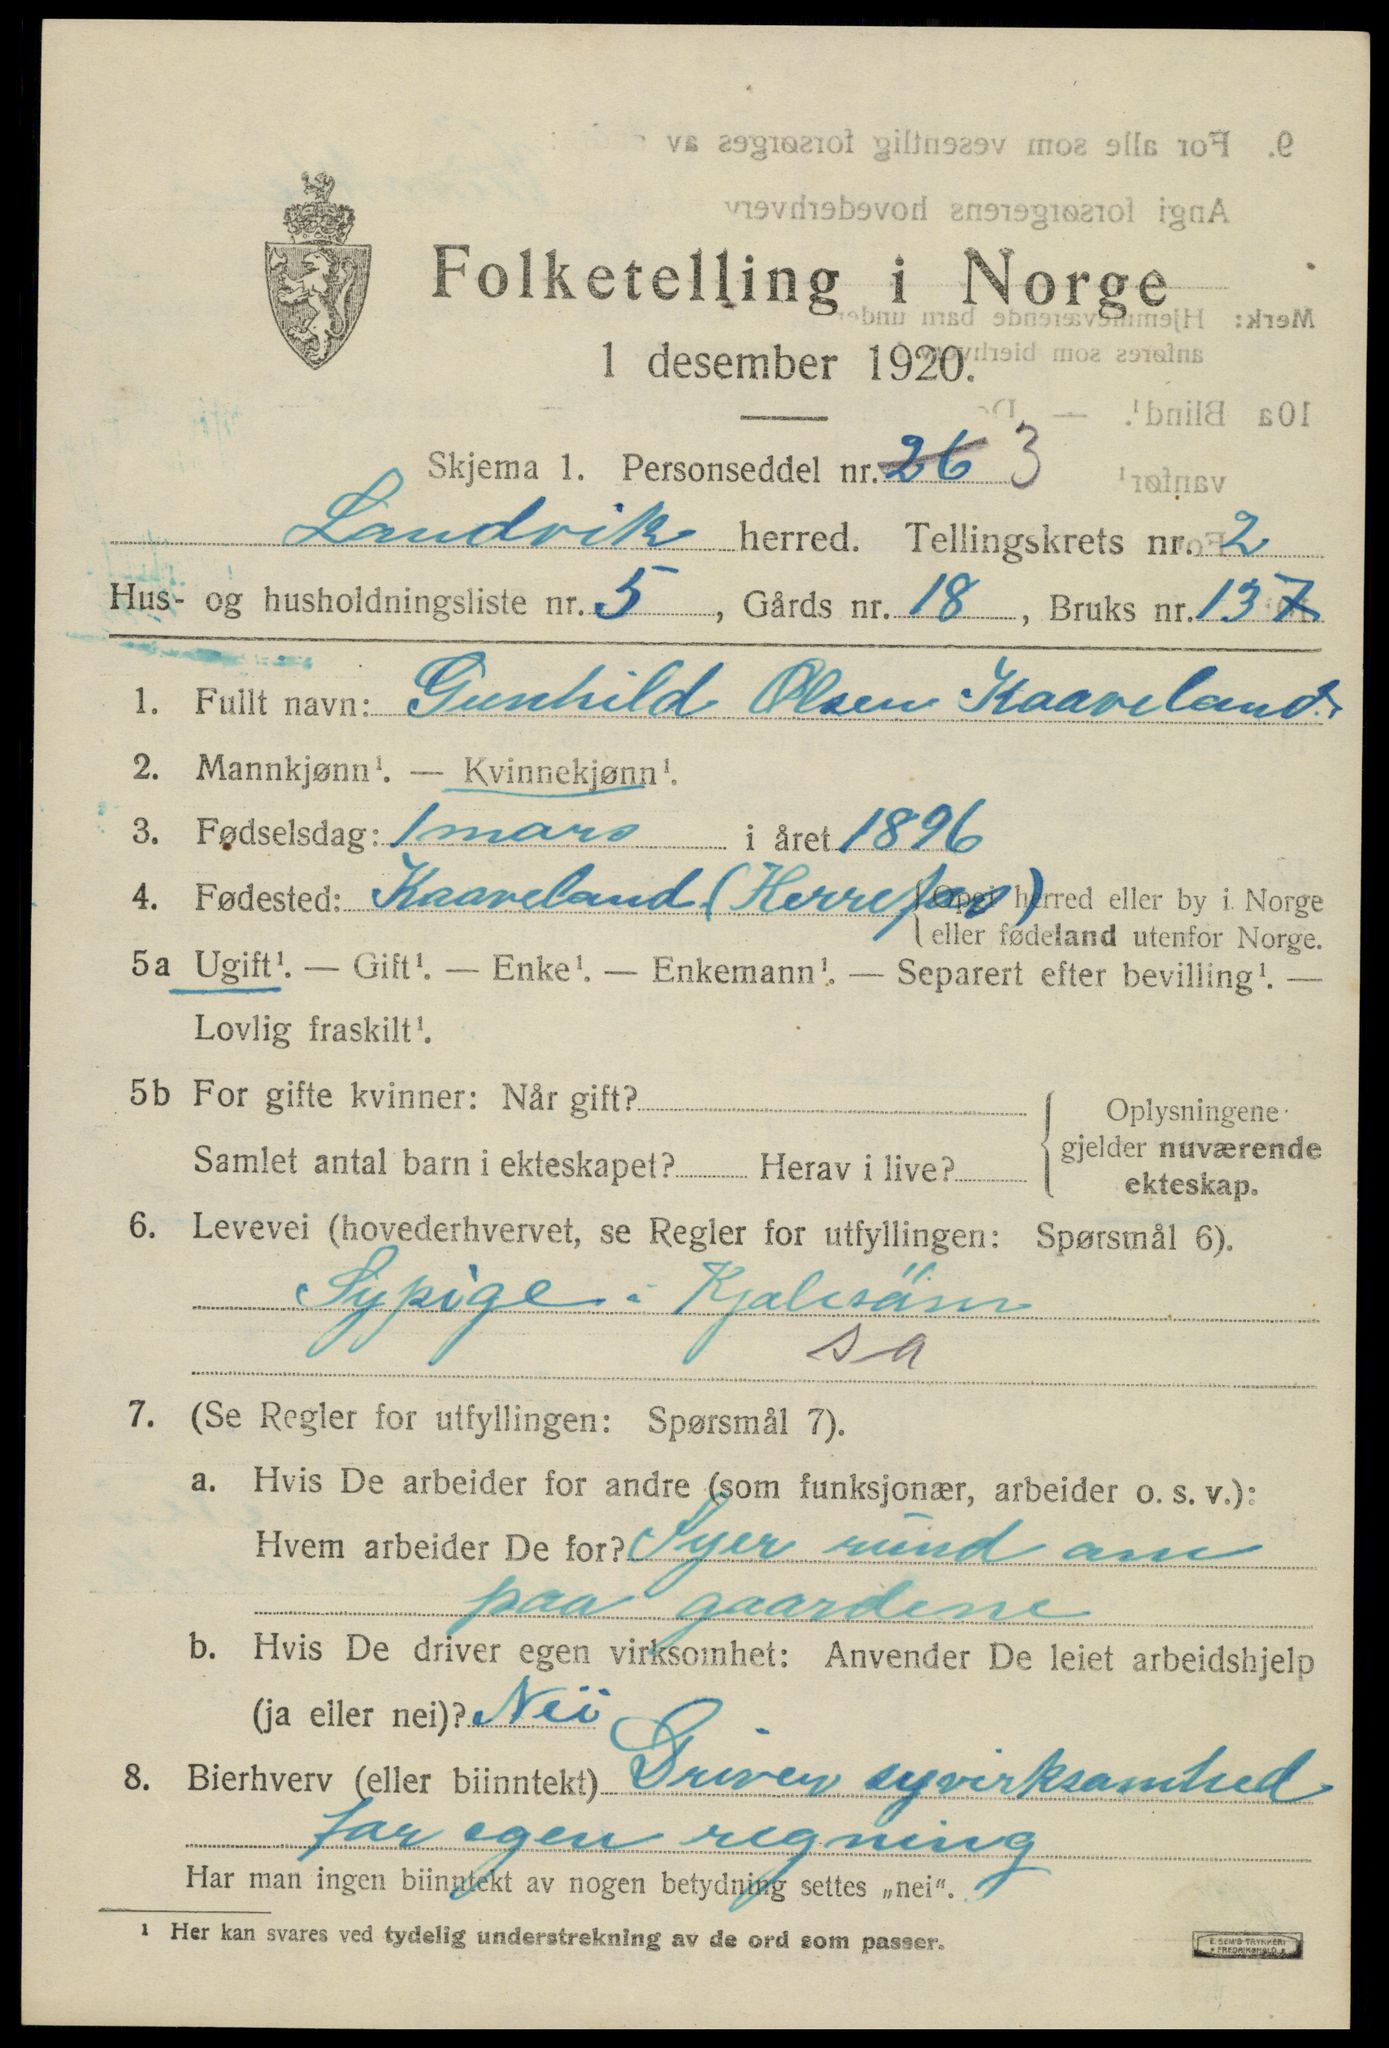 Folketelling i Norge
1 desember 1920.
Skjema 1. Personseddel nr. 26 3
Landvik herred. Tellingskrets nr. 2
Hus- og husholdningsliste nr. 5, Gårds nr. 18, Bruks nr. 137
1. Fullt navn: Gunhild Olsen Kaaveland.
2. Mannkjønn¹. — Kvinnekjønn¹.
3. Fødselsdag: 1 mars i året 1896
4. Fødested: Kaaveland (Herrefos) {Opgi herred eller by i Norge
eller fødeland utenfor Norge.
5a Ugift¹. — Gift¹. — Enke¹. — Enkemann¹. — Separert efter bevilling¹. —
Lovlig fraskilt¹.
5b For gifte kvinner: Når gift?
Samlet antal barn i ekteskapet? Herav i live?
Oplysningene
gjelder nuværende
ekteskap.
6. Levevei (hovederhvervet, se Regler for utfyllingen: Spørsmål 6).
Sypige i Kjolesöm
s a
7. (Se Regler for utfyllingen: Spørsmål 7).
a. Hvis De arbeider for andre (som funksjonær, arbeider o. s. v.):
Hvem arbeider De for? Syer rund om
paa gaardene
b. Hvis De driver egen virksomhet: Anvender De leiet arbeidshjelp
(ja eller nei)? Nei
8. Bierhverv (eller biinntekt) Driver syvirksomhed
for egen regning
Har man ingen biinntekt av nogen betydning settes „nei“.
¹ Her kan svares ved tydelig understrekning av de ord som passer.
E. SEM'S TRYKKERI
FREDRIKSHALD
9. For alle som vesentlig forsørges av
Angi forsørgerens hovederhverv
Merk: Hjemmeværende barn under
anføres som bierhverv
10a Blind¹. —
vanfør¹